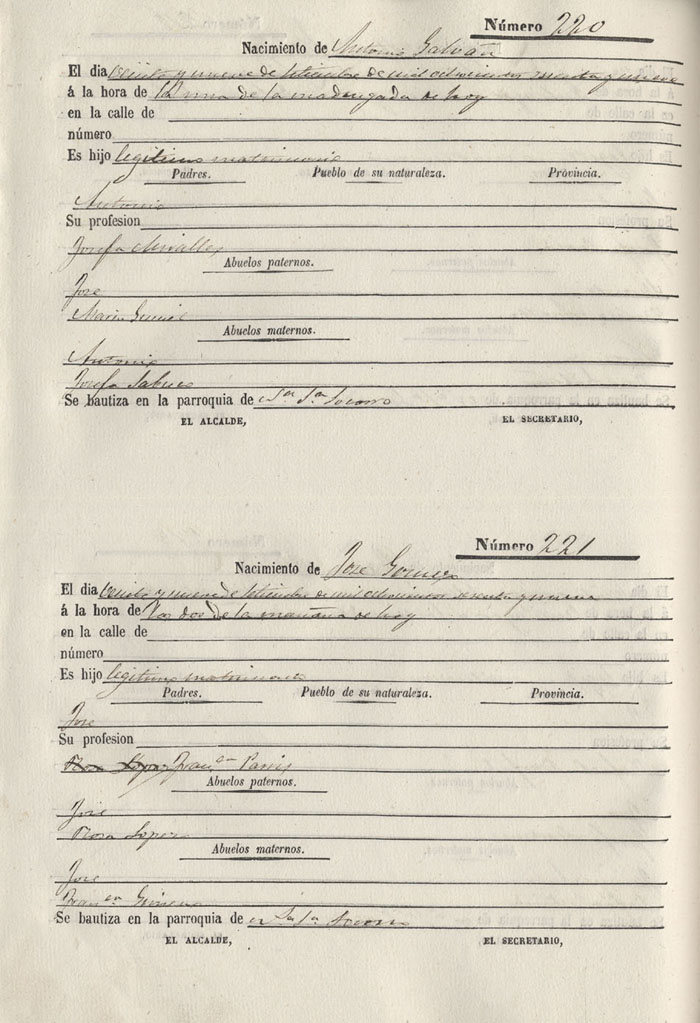 Número 220
Nacimiento de Antonio Galván
El dia veinte y nueve de Setiembre de mil ochocientos sesenta y nueve
á la hora de la una de la madrugada de hoy
en la calle de
número
Es hijo legitimo matrimonio
Padres. Pueblo de su naturaleza. Provincia.
Antonio
Su profesion
Josefa Miralles
Abuelos paternos.
Jose
Maria
Abuelos maternos.
Antonio
Josefa
Se bautiza en la parroquia de Socorro
EL ALCALDE, EL SECRETARIO,
Número 221
Nacimiento de Jose Gomez
El dia veinte y nueve de Setiembre de mil ochocientos sesenta y nueve
á la hora de las dos de la mañana de hoy
en la calle de
número
Es hijo legitimo matrimonio
Padres. Pueblo de su naturaleza. Provincia.
Jose
Su profesion
Fran.ca
Abuelos paternos.
José
Rosa Lopez
Abuelos maternos.
Jose
Fran.ca
Se bautiza en la parroquia de Socorro
EL ALCALDE, EL SECRETARIO,